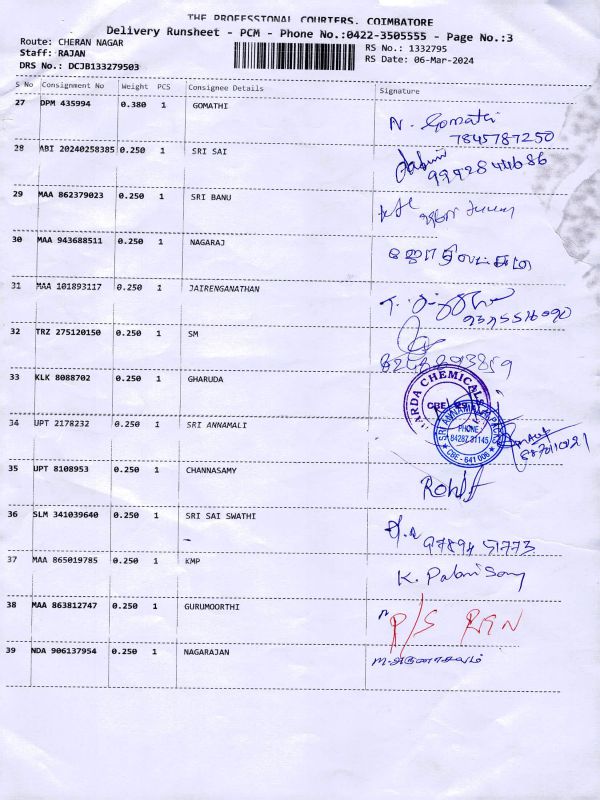 THE PROFESSIONAL COURIERS, COIMBATORE
Delivery Runsheet - PCM - Phone No.:0422-3505555 - Page No.:3
Route: CHERAN NAGAR
RS No.: 1332795
Staff: RAJAN
RS Date: 06-Mar-2024
DRS No.: DCJB133279503
S No Consignment No Weight PCS Consignee Details Signature
27 DPM 435994 0.380 1 GOMATHI N. Gomathi
7845787250
28 ABI 20240258385 0.250 1 SRI SAI
9942844686
29 MAA 862379023 0.250 1 SRI BANU
30 MAA 943688511 0.250 1 NAGARAJ
31 MAA 101893117 0.250 1 JAIRENGANATHAN
9375516090
32 TRZ 275120150 0.250 1 SM
33 KLK 8088702 0.250 1 GHARUDA
ARDA CHEMICALS
CBE
34 UPT 2178232 0.250 1 SRI ANNAMALI
SRI ANNAMALAI
PHONE
84287 31145
CBE - 641 006
35 UPT 8108953 0.250 1 CHANNASAMY
Rohit
36 SLM 341039640 0.250 1 SRI SAI SWATHI
97894 51773
37 MAA 865019785 0.250 1 KMP K. Palanisamy
38 MAA 863812747 0.250 1 GURUMOORTHI P/S RTN
39 NDA 906137954 0.250 1 NAGARAJAN